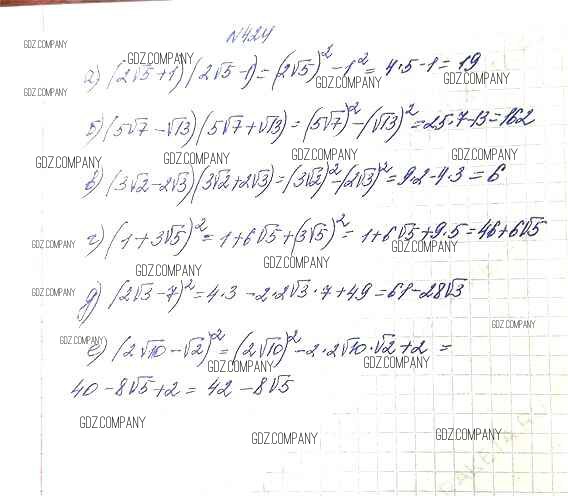 N424
GDZ.COMPANY
GDZ.COMPANY GDZ.COMPANY
а) (2√5+1)(2√5-1)=(2√5)²-1²=4·5-1=19
GDZ.COMPANY GDZ.COMPANY
б) (5√7-√13)(5√7+√13)=(5√7)²-(√13)²=25·7-13=162
GDZ.COMPANY GDZ.COMPANY GDZ.COMPANY GDZ.COMPANY
в) (3√2-2√3)(3√2+2√3)=(3√2)²-(2√3)²=9·2-4·3=6
г) (1+3√5)²=1+6√5+(3√5)²=1+6√5+9·5=46+6√5
GDZ.COMPANY GDZ.COMPANY
GDZ.COMPANY GDZ.COMPANY
д) (2√3-7)²=4·3-2·2√3·7+49=61-28√3
GDZ.COMPANY
GDZ.COMPANY
GDZ.COMPANY
е) (2√10-√2)²=(2√10)²-2·2√10·√2+2=
GDZ.COMPANY GDZ.COMPANY
40-8√5+2=42-8√5
GDZ.COMPANY GDZ.COMPANY GDZ.COMPANY